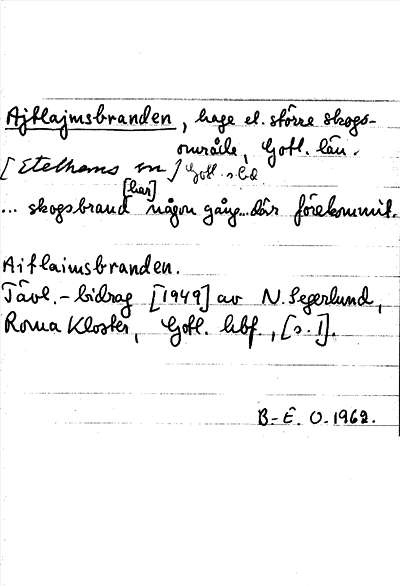 Ajflajmsbranden, hage el. större skogs-
område, Gotl. län.
[Etelhems sn] Gotl. s:bd
[har]
... skogsbrand någon gång...där förekommit.
Aiflaimsbranden.
Tävl.-bidrag [1949] av N. Segerlund,
Roma Kloster, Gotl. hbf, [s. 1].
B-E. O. 1962.